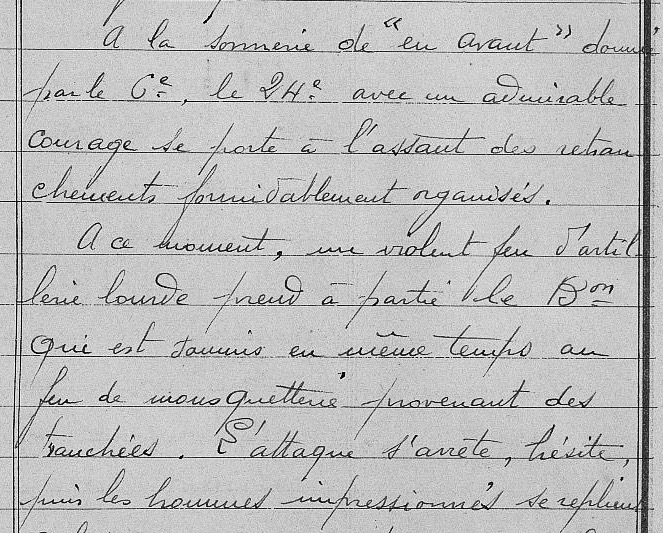 A la sonnerie de "en avant" donnée
par le 6e, le 24e avec un admirable
courage se porte à l'assaut des retran
chements formidablement organisés.
A ce moment, un violent feu d'artil
lerie lourde prend à partie le Bon
qui est soumis en même temps au
feu de mousquetterie provenant des
tranchées. L'attaque s'arrête, hésite,
puis les hommes impressionnés se replient